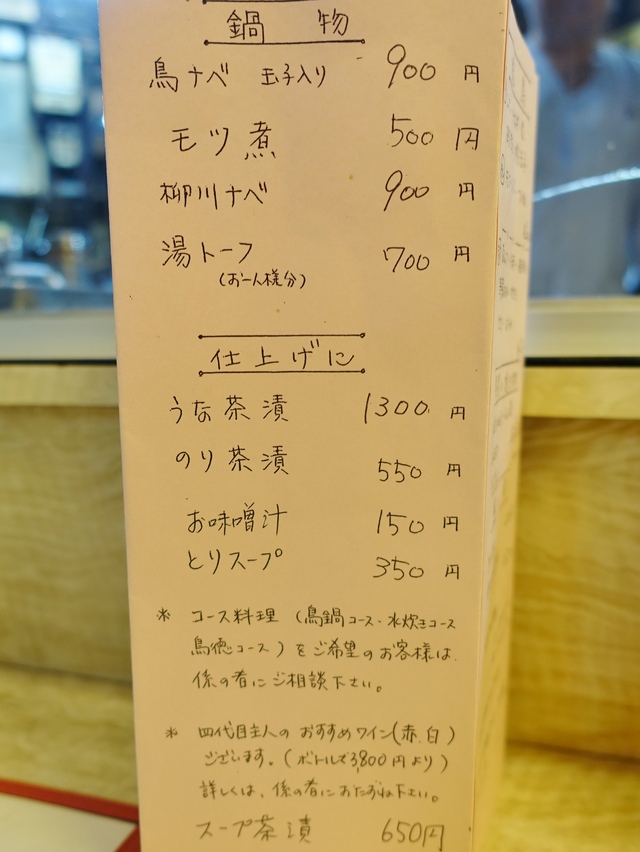 鍋物
鳥ナベ 玉子入り 900円
モツ煮 500円
柳川ナベ 900円
湯トーフ 700円
(お一人様分)
仕上げに
うな茶漬 1300円
のり茶漬 550円
お味噌汁 150円
とりスープ 350円
* コース料理(鳥鍋コース・水炊きコース
鳥徳コース)をご希望のお客様は、
係の者にご相談下さい。
* 四代目主人のおすすめワイン(赤.白)
ございます。(ボトルで3,800円より)
詳しくは、係の者におたずね下さい。
スープ茶漬 650円